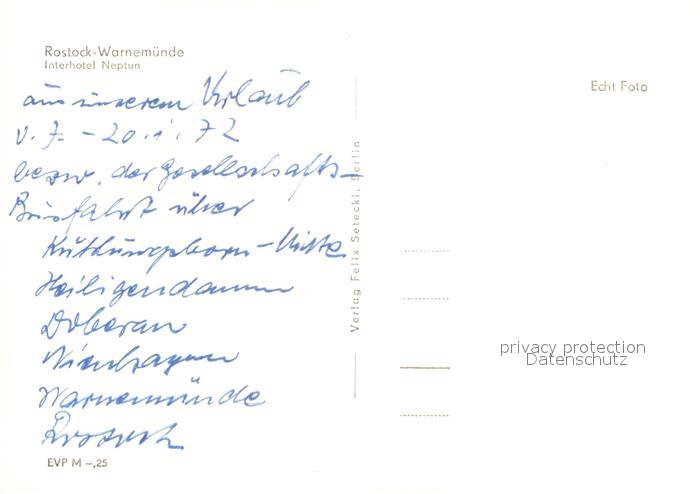 Rostock-Warnemünde
Interhotel Neptun
aus unserem Urlaub
v. 7. - 20. 1. 72
besw. der Gesellschafts-
Busfahrt über
Kühlungsborn - Mitte
Heiligendamm
Doberan
Nienhagen
Warnemünde
Rostock
EVP M -,25
Verlag Felix Setecki, Berlin
Echt Foto
privacy protection
Datenschutz